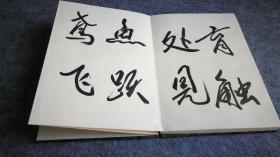 育触
处见
鱼跃
鸢飞